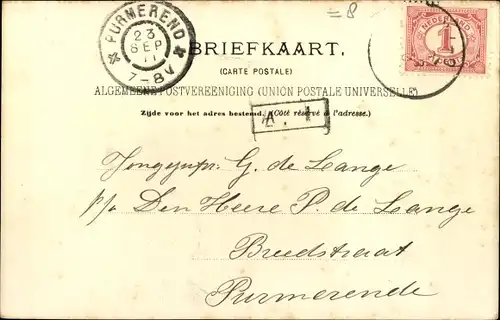 = B
PURMEREND
23
SEP
11
7-8V
NEDERLAND
1
BRIEFKAART.
(CARTE POSTALE)
ALGEMEENE POSTVEREENIGING (UNION POSTALE UNIVERSELLE)
Zijde voor het adres bestemd. (Côté réservé à l'adresse.)
A. 1
Jongejufr: G. de Lange
p/a Den Heere P. de Lange
Breedstraat
Purmerende